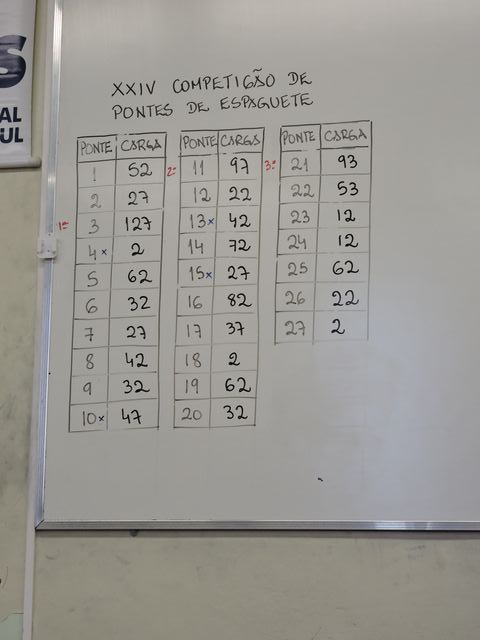 S
AL
UL
XXIV COMPETIGÃO DE
PONTES DE ESPAGUETE
PONTE CARGA
1 52
2 27
1ª 3 127
4 x 2
5 62
6 32
7 27
8 42
9 32
10 x 47
PONTE CARGA
2ª 11 97
12 22
13 x 42
14 72
15 x 27
16 82
17 37
18 2
19 62
20 32
PONTE CARGA
3ª 21 93
22 53
23 12
24 12
25 62
26 22
27 2